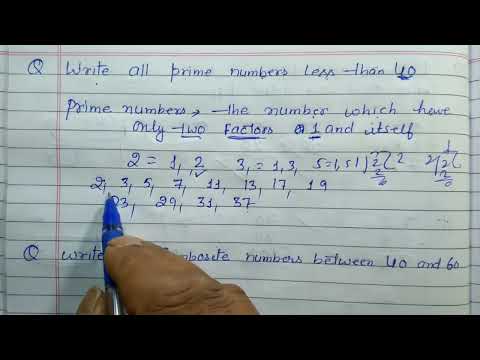 Q Write all prime numbers less than 40
Prime numbers → the number which have
only two factors 1 and itself
2 = 1, 2 ✓ 3, = 1, 3, 5 = 1, 5
2, 3, 5, 7, 11, 13, 17, 19
23, 29, 31, 37
Q Write numbers between 40 and 60